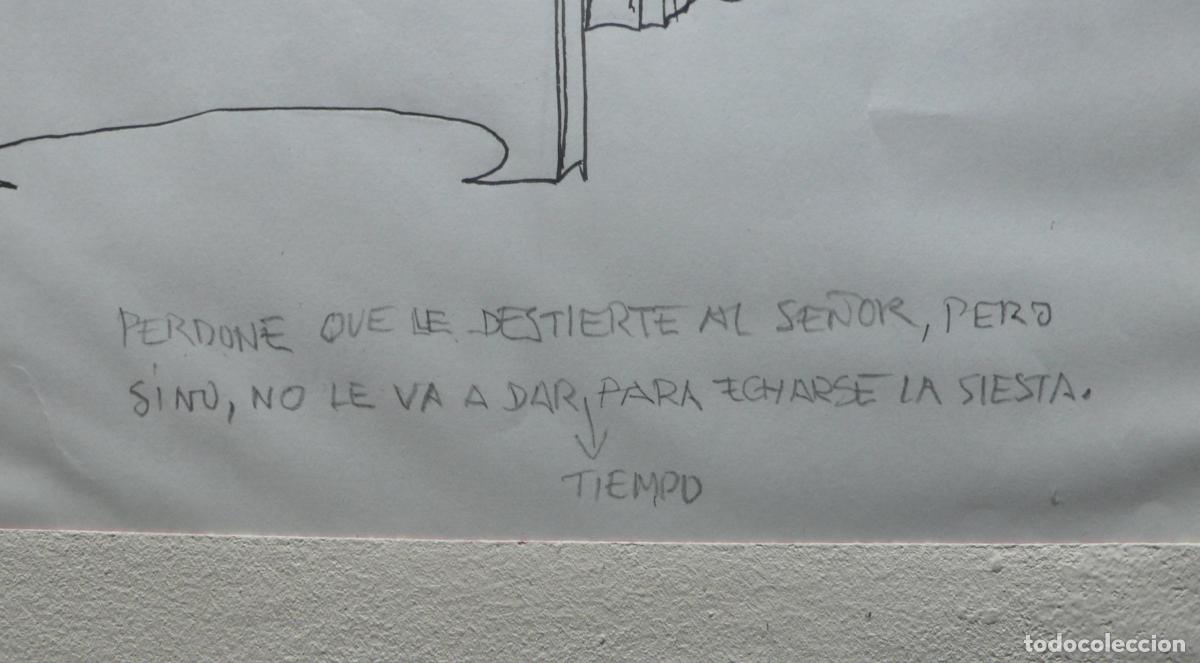 PERDONE QUE LE DESTIERTE AL SEÑOR, PERO
SINO, NO LE VA A DAR, PARA ECHARSE LA SIESTA.
TIEMPO
todocoleccion